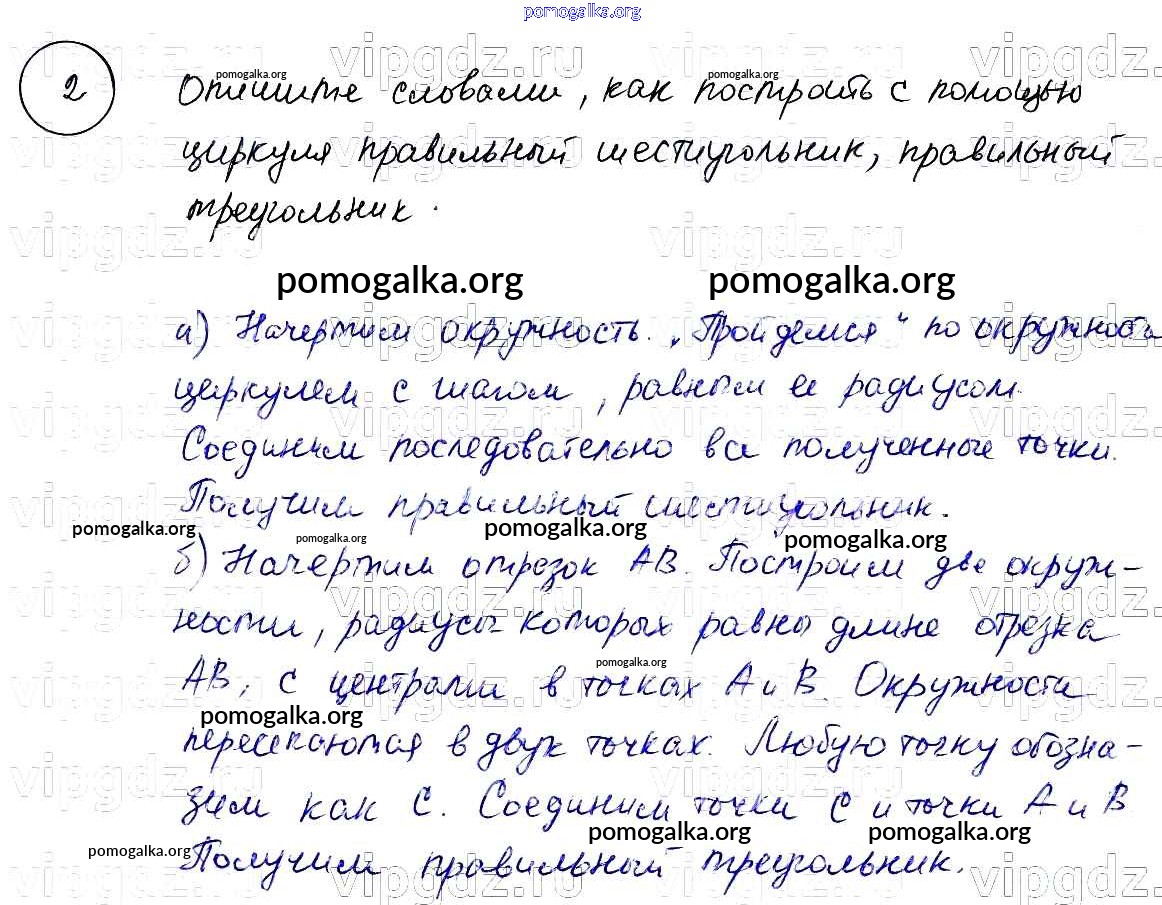 pomogalka.org
vipgdz.ru vipgdz.ru vipgdz.ru vipgdz.ru
2
pomogalka.org pomogalka.org pomogalka.org
Опишите словами, как построить с помощью
циркуля правильный шестиугольник, правильный
треугольник.
pomogalka.org pomogalka.org
а) Начертим окружность. „Пройдемся“ по окружности
циркулем с шагом, равным ее радиусом.
Соединим последовательно все полученные точки.
Получим правильный шестиугольник.
pomogalka.org pomogalka.org pomogalka.org pomogalka.org
б) Начертим отрезок АВ. Построим две окруж-
ности, радиусы которых равны длине отрезка
pomogalka.org
АВ, с центрами в точках А и В. Окружности
pomogalka.org
пересекаются в двух точках. Любую точку обозна-
зим как С. Соединим точки С и точки А и В
pomogalka.org pomogalka.org pomogalka.org
Получим правильный треугольник.